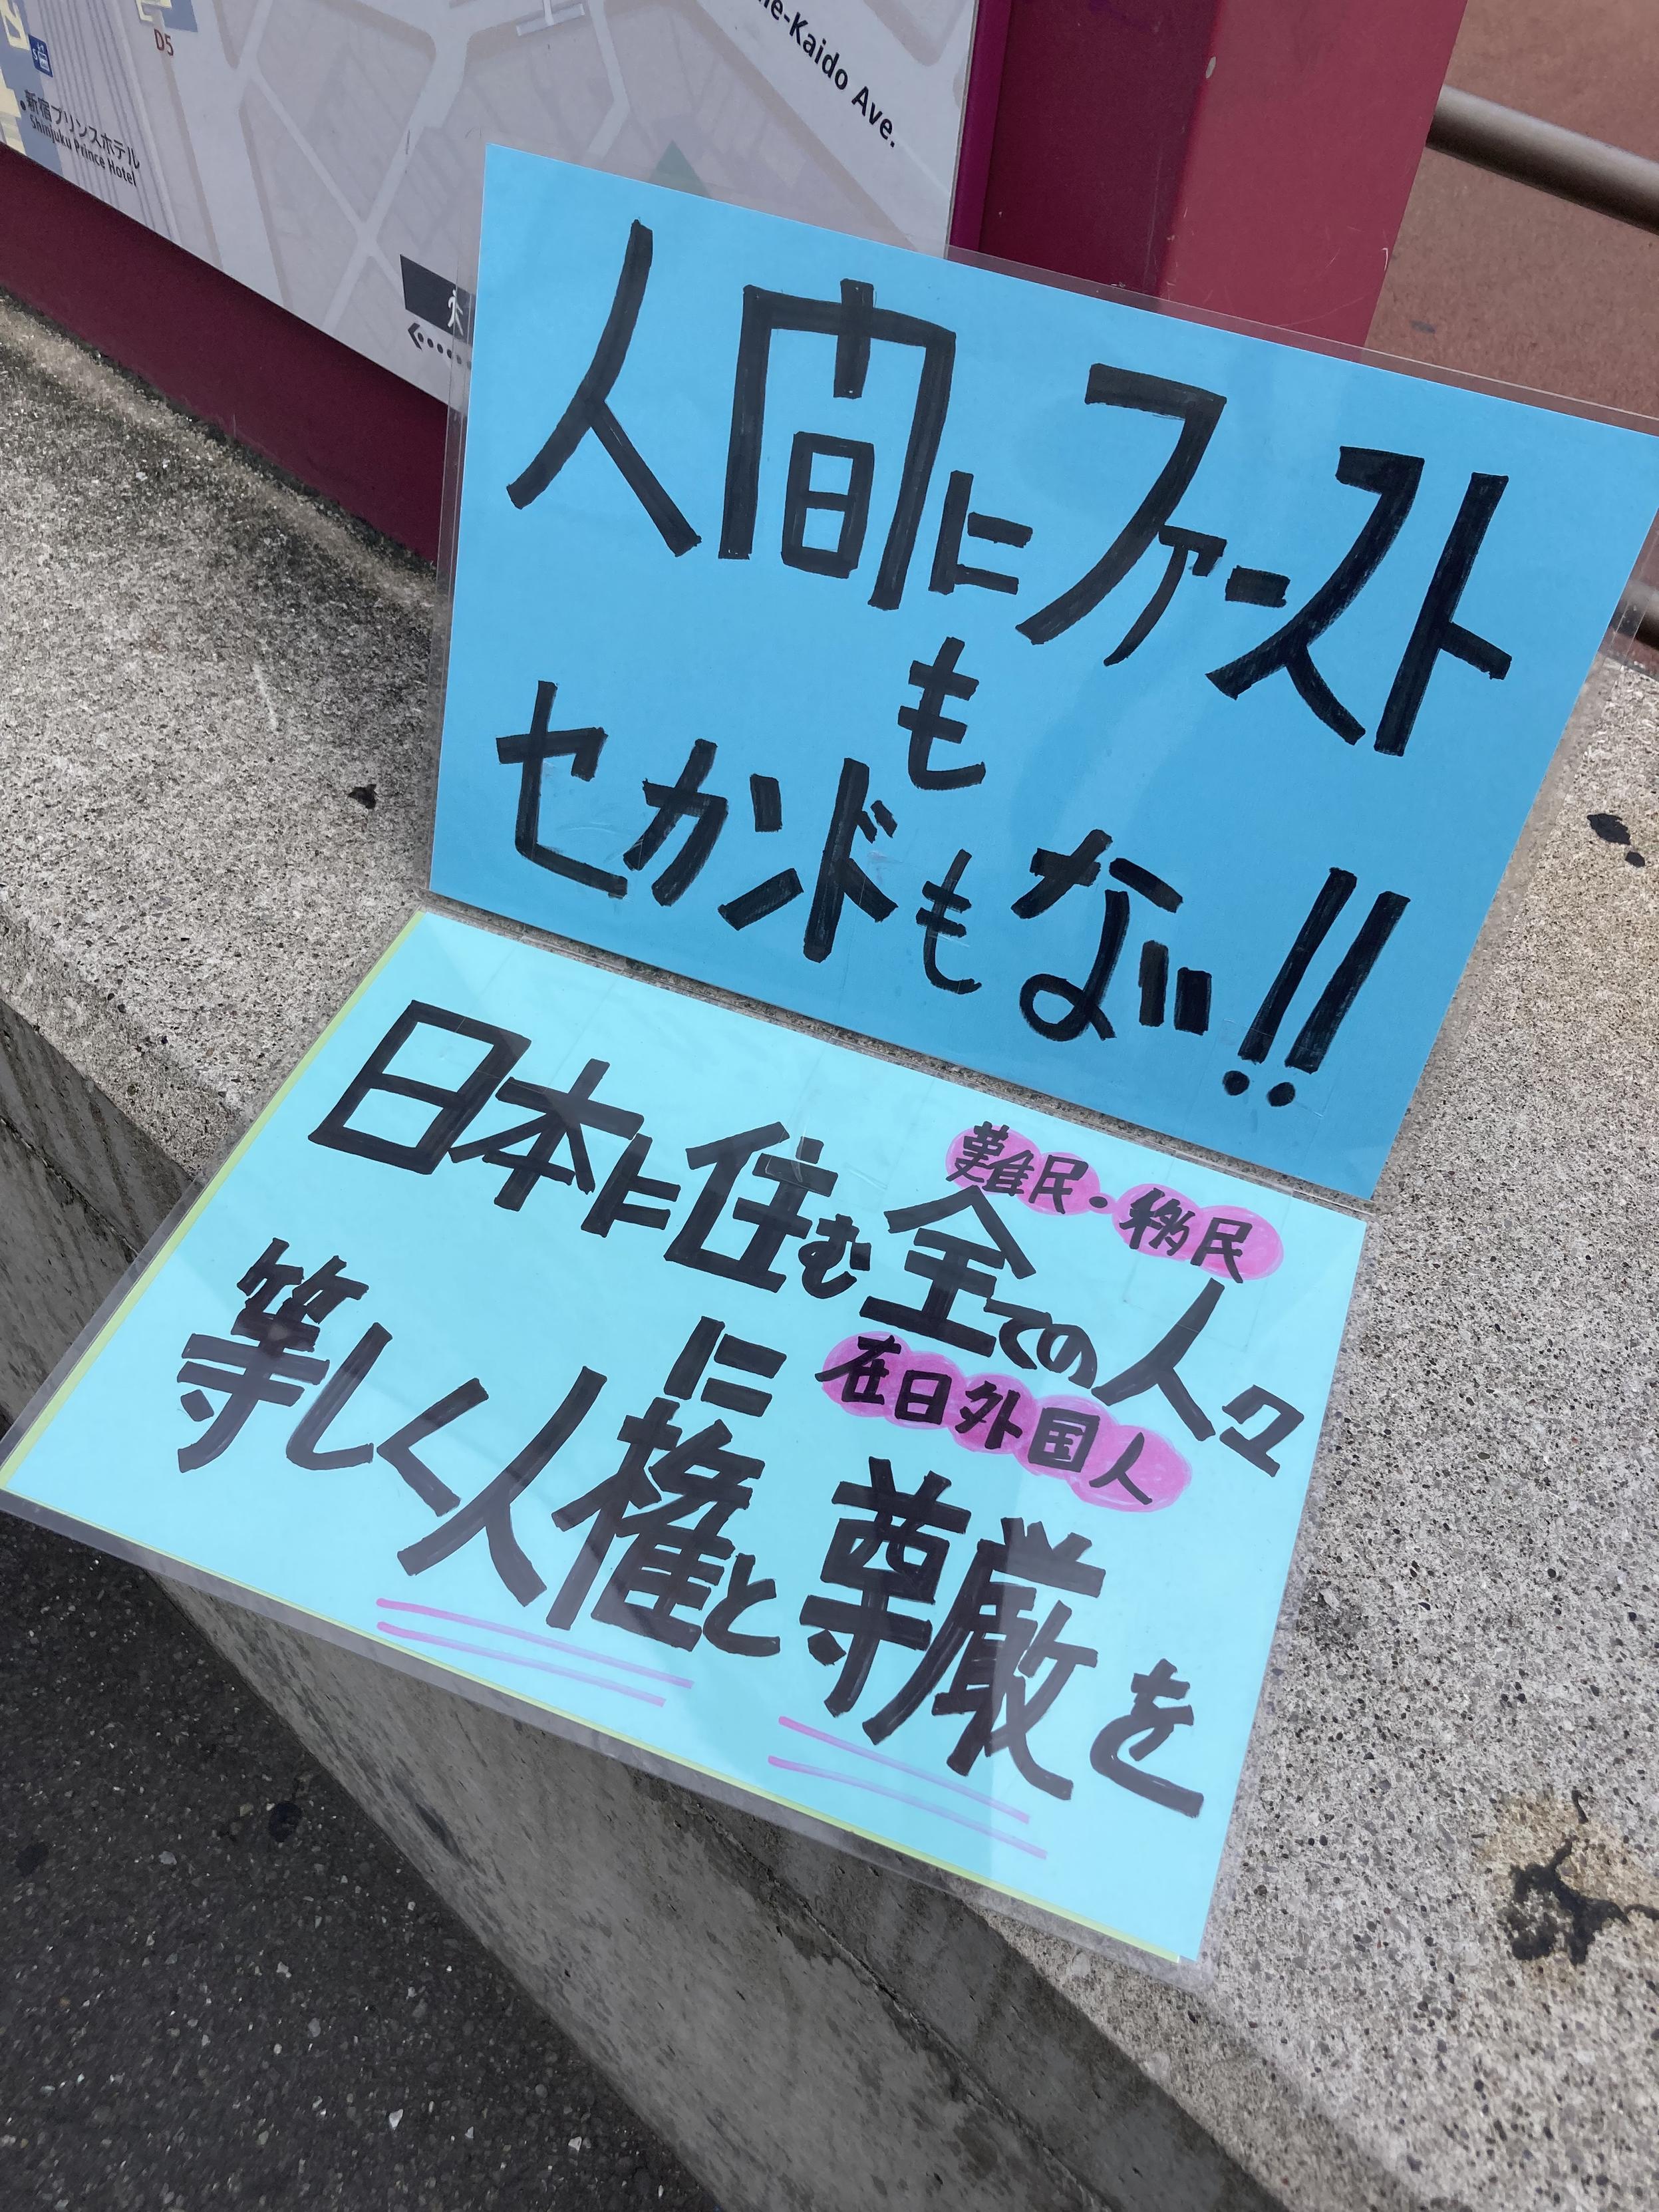 D5
新宿プリンスホテル
Shinjuku Prince Hotel
e-Kaido Ave.
人間にファスト
も
セカンドもない!!
難民・移民
日本に住む全ての人々
に 在日外国人
等しく人権と尊厳を